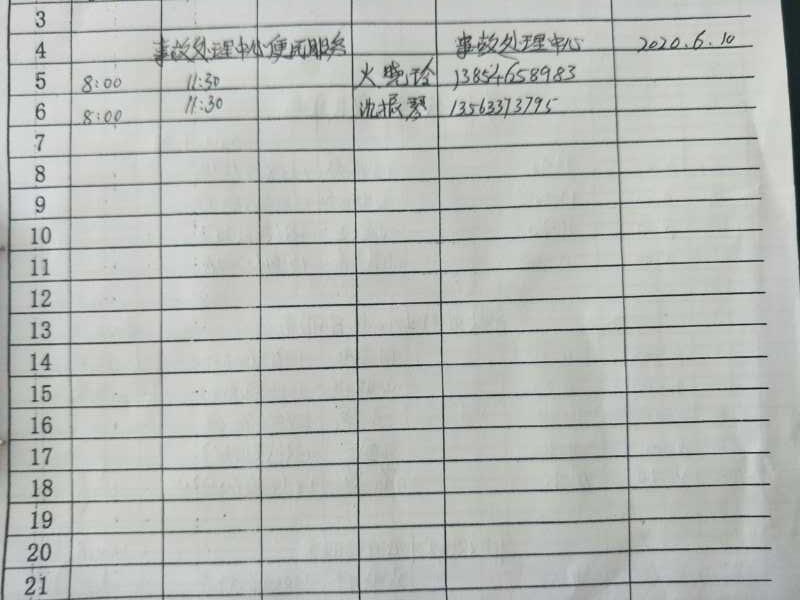 3
4 事故处理中心便民服务 事故处理中心 2020.6.10
5 8:00 11:30 火晓玲 13854658983
6 8:00 11:30 沈振琴 13563373795
7
8
9
10
11
12
13
14
15
16
17
18
19
20
21